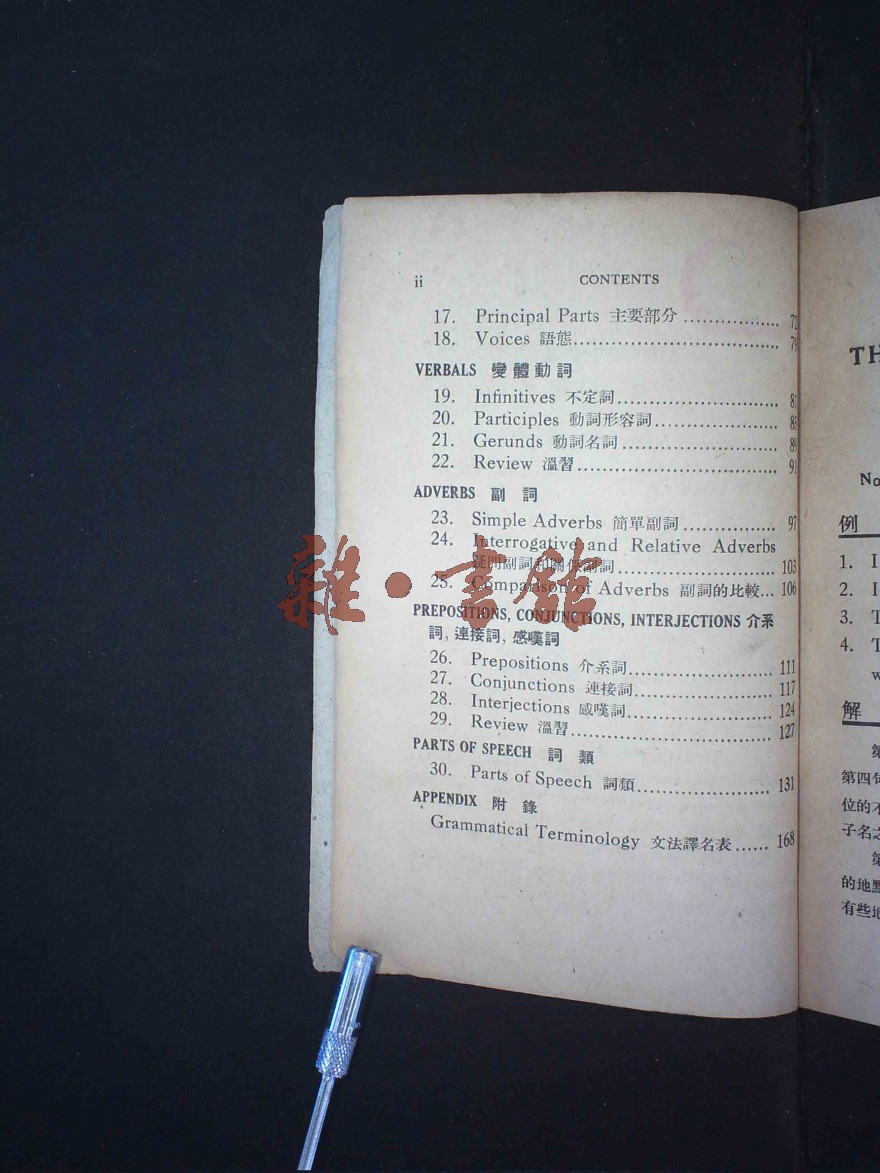 ii CONTENTS
17. Principal Parts 主要部分 ................. 72
18. Voices 語態..................................... 79
VERBALS 變體動詞
19. Infinitives 不定詞............................. 81
20. Participles 動詞形容詞...................... 85
21. Gerunds 動詞名詞............................ 89
22. Review 溫習.................................... 91
ADVERBS 副詞
23. Simple Adverbs 簡單副詞................ 97
24. Interrogative and Relative Adverbs
疑問副詞和關係副詞........................ 103
25. Comparison of Adverbs 副詞的比較... 106
PREPOSITIONS, CONJUNCTIONS, INTERJECTIONS 介系
詞, 連接詞, 感嘆詞
26. Prepositions 介系詞........................ 111
27. Conjunctions 連接詞....................... 117
28. Interjections 感嘆詞........................ 124
29. Review 溫習.................................... 127
PARTS OF SPEECH 詞類
30. Parts of Speech 詞類...................... 131
APPENDIX 附錄
Grammatical Terminology 文法譯名表...... 168
雜·書館
TH
No
例
1. I
2. I
3. T
4. T
w
解
第
第四句
位的不
子名之
第
的地點
有些地